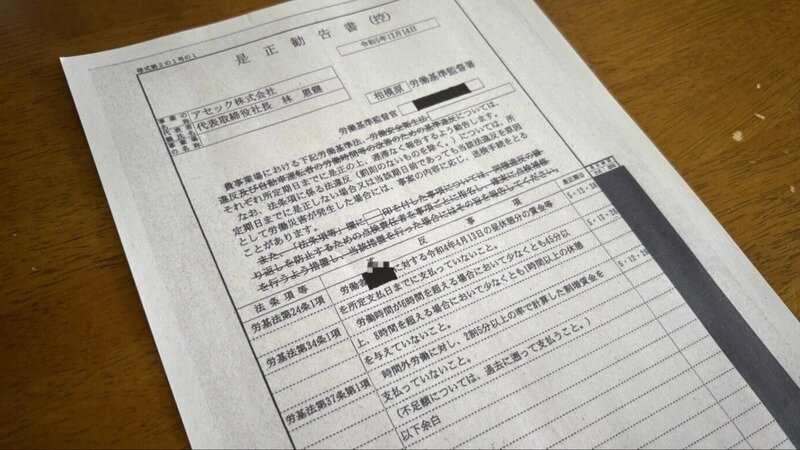 様式第2の1号の1
是正勧告書(控)
令和5年12月14日
アセック株式会社
代表取締役社長 林 恩畿
相模原 労働基準監督署
労働基準監督官
貴事業場における下記労働基準法、労働安全衛生法
違反及び自動車運転者の労働時間等の改善のための基準違反については、
それぞれ所定期日までに是正の上、遅滞なく報告するよう勧告します。
なお、法条項に係る法違反(罰則のないものを除く。)については、所
定期日までに是正しない場合又は当該期日前であっても当該法違反を原因
として労働災害が発生した場合には、事案の内容に応じ、送検手続をとる
ことがあります。
また、「法条項等」欄に□印を付した事項については、同種違反の繰
り返しを防止するための点検責任者を事項ごとに指名し、確実に点検補修
を行うよう措置し、当該措置を行った場合にはその旨を報告してください。
法条項等
違反事項
是正期日
労基法第24条1項
労働者 に対する令和4年4月13日の昼休憩分の賃金等
を所定支払日までに支払っていないこと。
5・12・26
労基法第34条1項
労働時間が6時間を超える場合において少なくとも45分以
上、8時間を超える場合において少なくとも1時間以上の休憩
を与えていないこと。
5・12・26
労基法第37条第1項
時間外労働に対し、2割5分以上の率で計算した割増賃金を
支払っていないこと。
5・12・26
(不足額については、過去に遡って支払うこと。)
以下余白